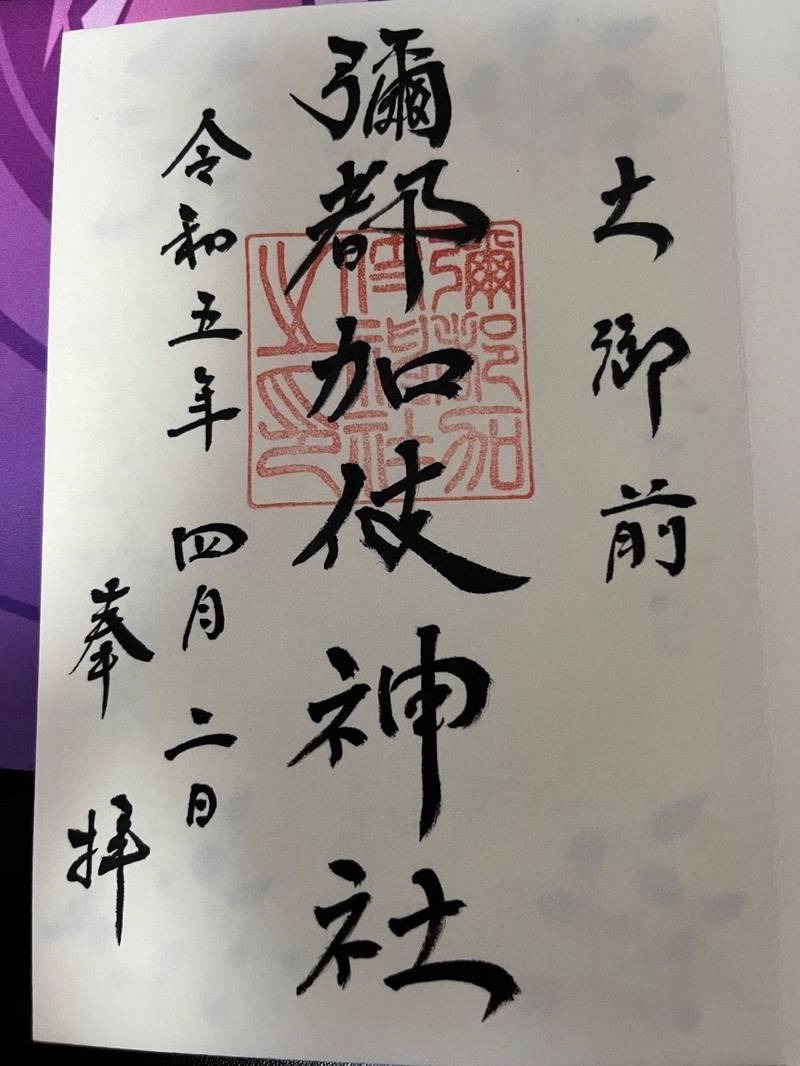 大御前
彌都加伎神社
彌都加
伎神社
之印
令和五年四月二日
奉拝